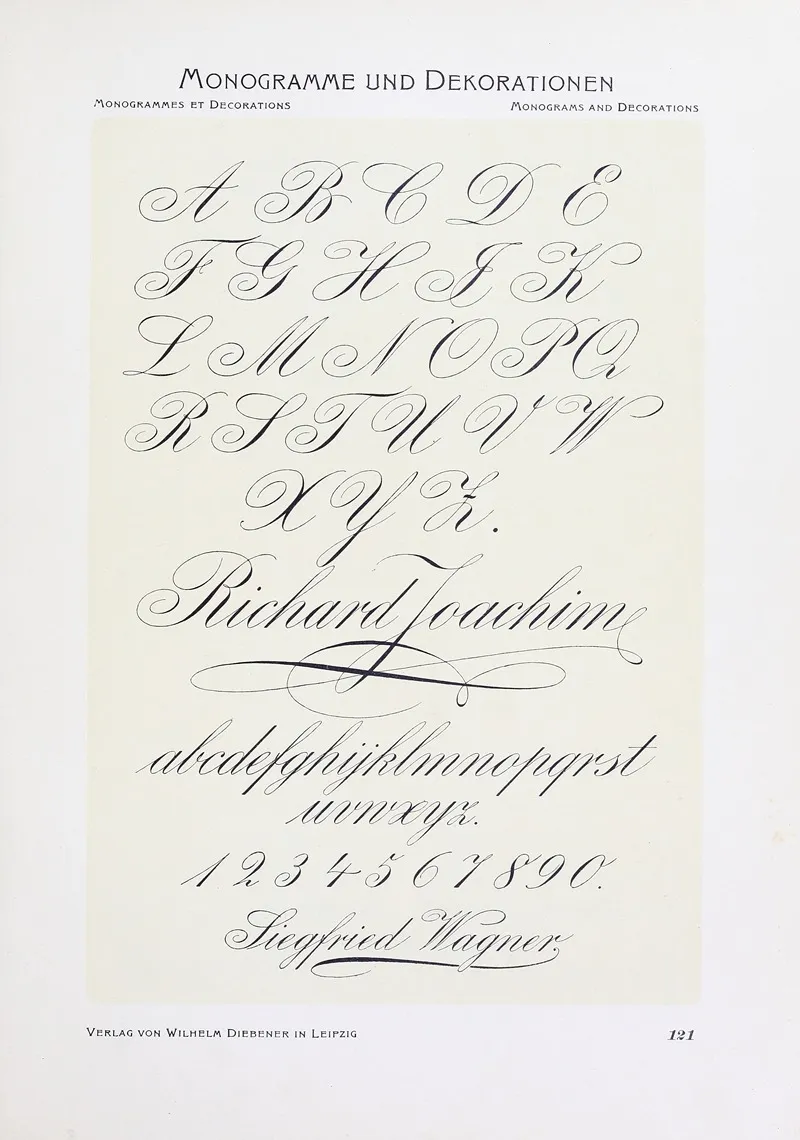 MONOGRAMME UND DEKORATIONEN
MONOGRAMMES ET DECORATIONS
MONOGRAMS AND DECORATIONS
A B C D E
F G H J K
L M N O P Q
R S T U V W
X Y Z.
Richard Joachim
abcdefghijklmnopqrst
uvwxyz.
1 2 3 4 5 6 7 8 9 0.
Siegfried Wagner.
VERLAG VON WILHELM DIEBENER IN LEIPZIG
121